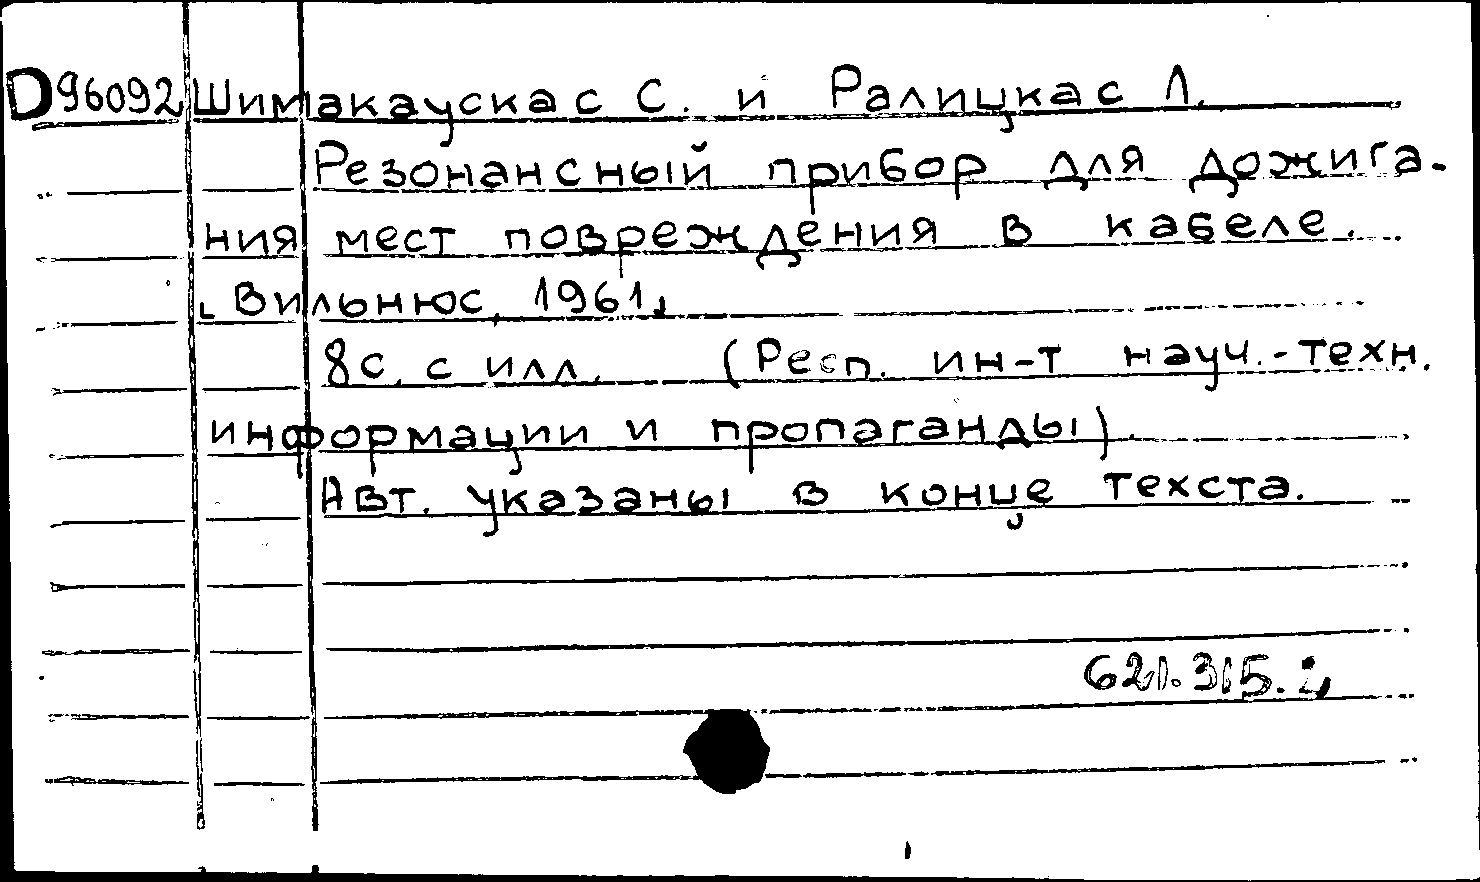 D96092 Шимакаускас С. и Ралицкас Л.
Резонансный прибор для дожига-
ния мест повреждения в кабеле.
[Вильнюс, 1961]
8с. с илл. (Респ. ин-т науч.-техн.
информации и пропаганды).
Авт. указаны в конце текста.
621.315.2